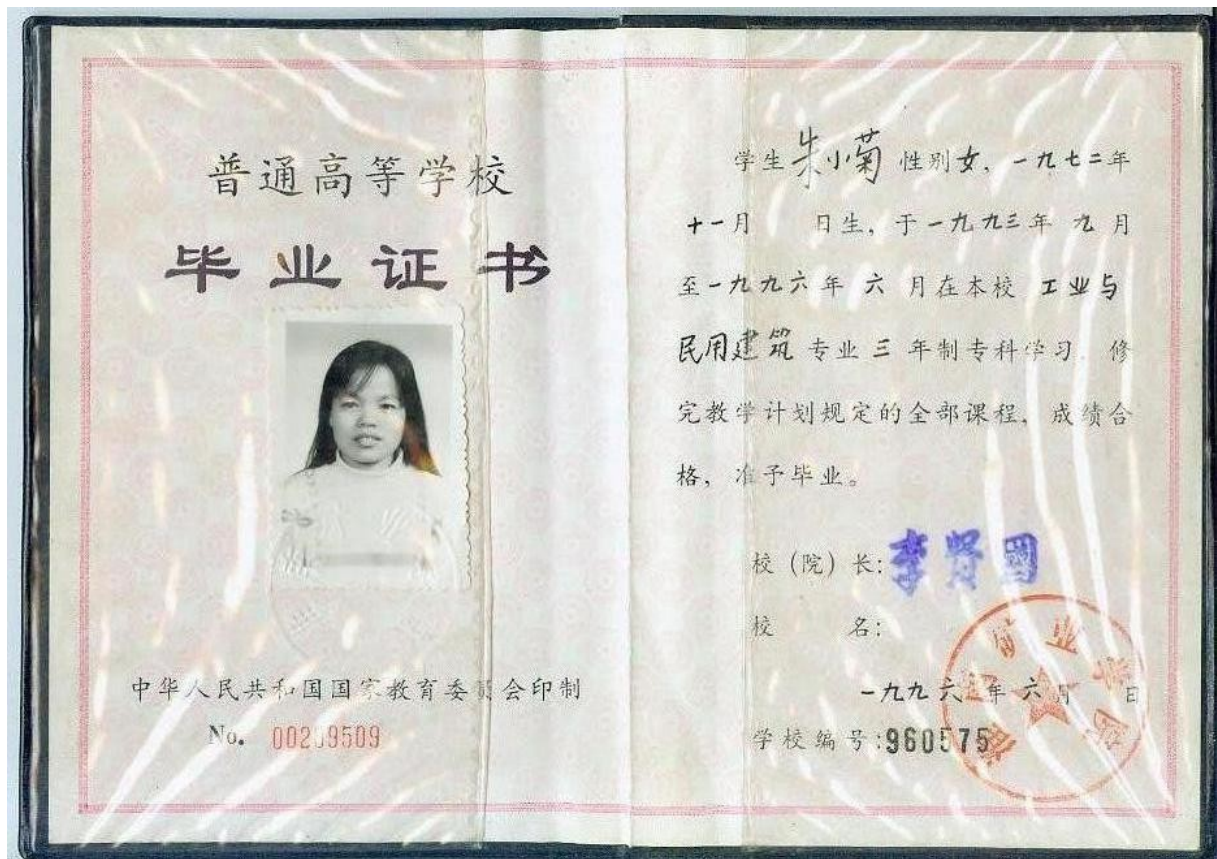 普通高等学校
毕业证书
中华人民共和国国家教育委员会印制
No. 00209509
学生朱小菊性别女，一九七二年
十一月 日生，于一九九三年九月
至一九九六年六月在本校工业与
民用建筑专业三年制专科学习 修
完教学计划规定的全部课程，成绩合
格，准予毕业。
校（院）长：李贤国
校 名：
一九九六年六月 日
学校编号：960575
矿业学院